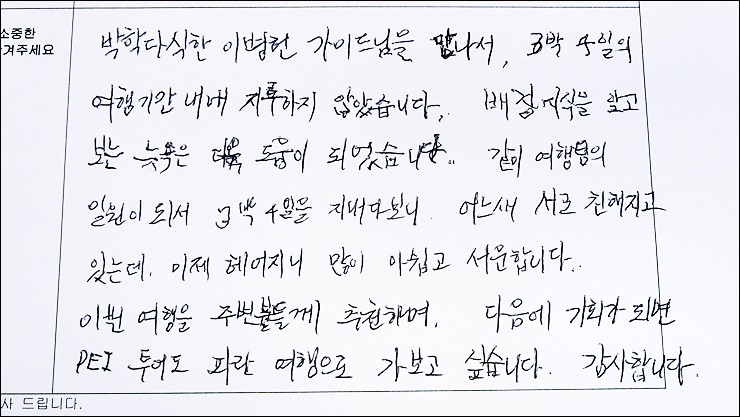 소중한
겨주세요
박학다식한 이병헌 가이드님을 만나서, 3박 4일의
여행기간 내내 지루하지 않았습니다. 배경지식을 알고
보는 뉴욕은 더욱 도움이 되었습니다.. 같이 여행의
일원이 되서 3박 4일을 지내다보니. 어느새 서로 친해지고
있는데, 이제 헤어지니 많이 아쉽고 서운합니다..
이번 여행을 주변분들께 추천하며, 다음에 기회가 되면
PEI 투어도 파란 여행으로 가보고 싶습니다. 감사합니다.
사 드립니다.